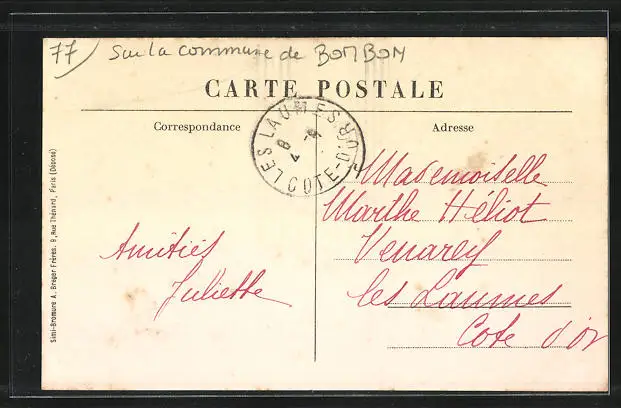 77) Sur la commune de BOMBON
CARTE POSTALE
Correspondance
Adresse
LES LAUMES COTE-D'OR
8
4
Mademoiselle
Marthe Héliot
Venarey
les Laumes
Cote d'or
Amitiés
Juliette
Simi-Bromure A. Breger Frères. 9, Rue Thénard, Paris (Déposé)